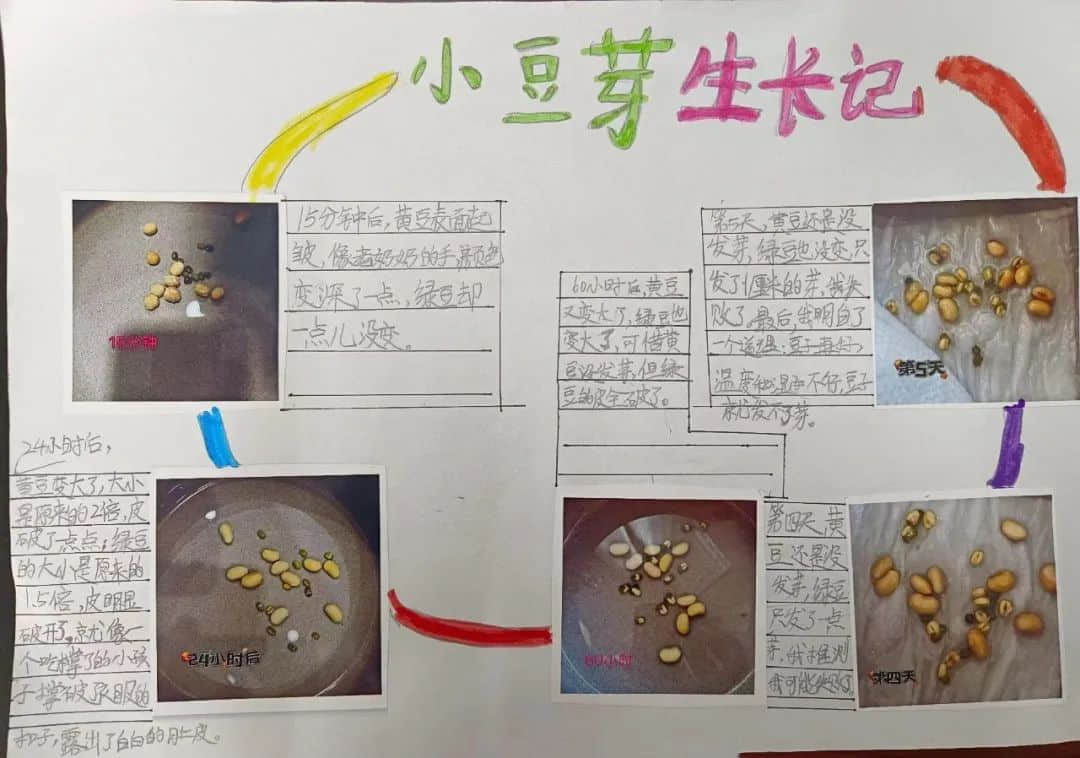 小豆芽生长记
15分钟后，黄豆表面起
皱，像老奶奶的手，颜色
变深了一点，绿豆却
一点儿没变。
15分钟
24小时后，
黄豆变大了，大小
是原来的2倍，皮
破了一点点，绿豆
的大小是原来的
1.5倍，皮明显
破开了。就像一
个吃撑了的小孩
子撑破了衣服的
扣子，露出了白白的肚皮。
24小时后
60小时后，黄豆
又变大了，绿豆也
变大了，可惜黄
豆没发芽，但绿
豆的皮全破了。
60小时
第四天，黄
豆还是没
发芽，绿豆
只发了一点
芽，我推测
我可能失败了
第四天
第5天，黄豆还是没
发芽，绿豆也没变，只
发了1厘米的芽，我失
败了。最后，我明白了
一个道理：豆子再好，
温度和湿度不行，豆子
就发不了芽。
第5天